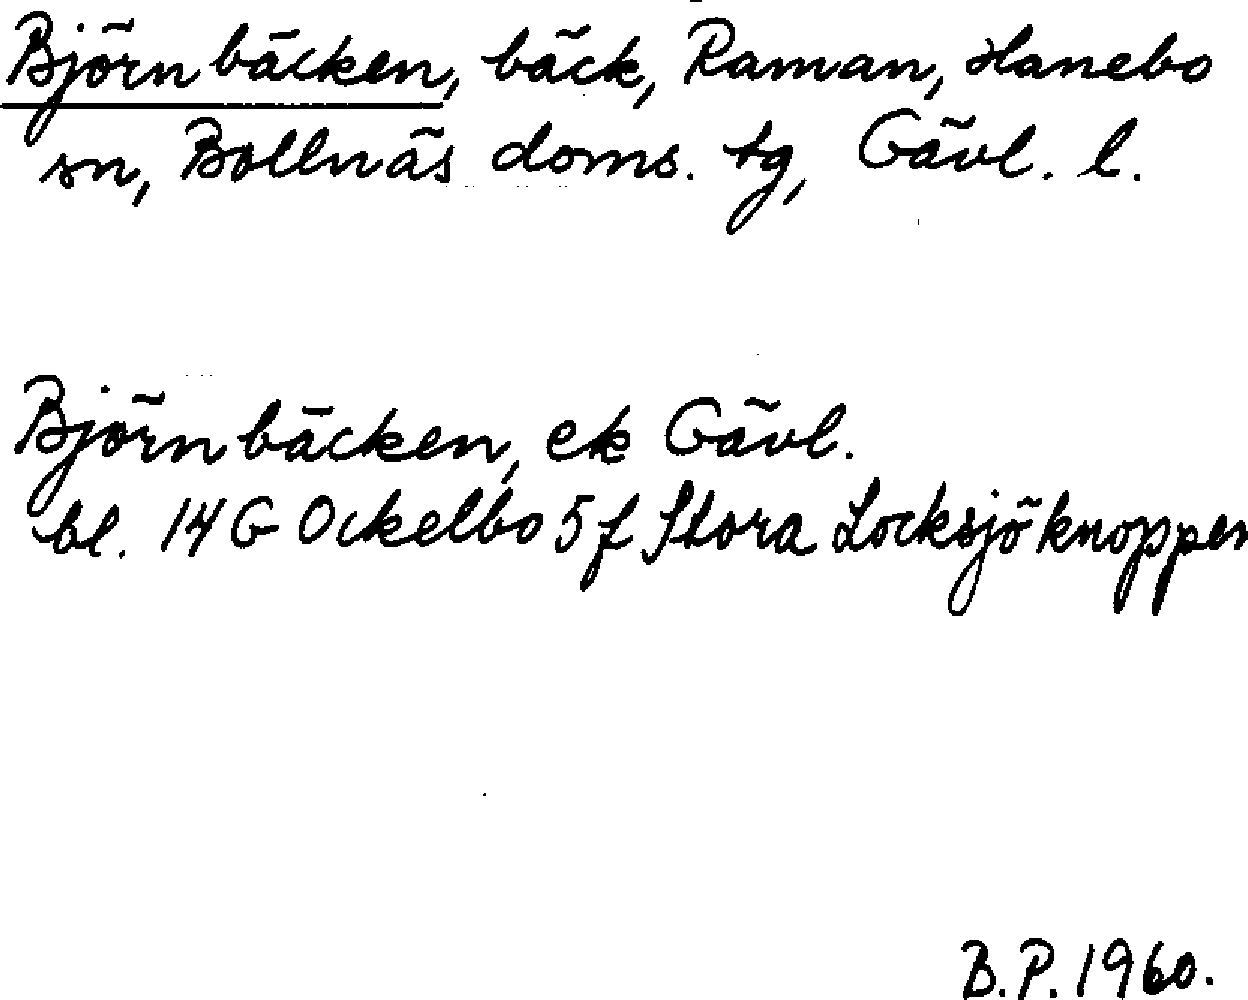 Björnbäcken, bäck, Raman, Hanebo
sn, Bollnäs doms. tg, Gävl. l.
Björnbäcken, ek Gävl.
bl. 14 G Ockelbo 5 f Stora Locksjöknoppen
B.P. 1960.